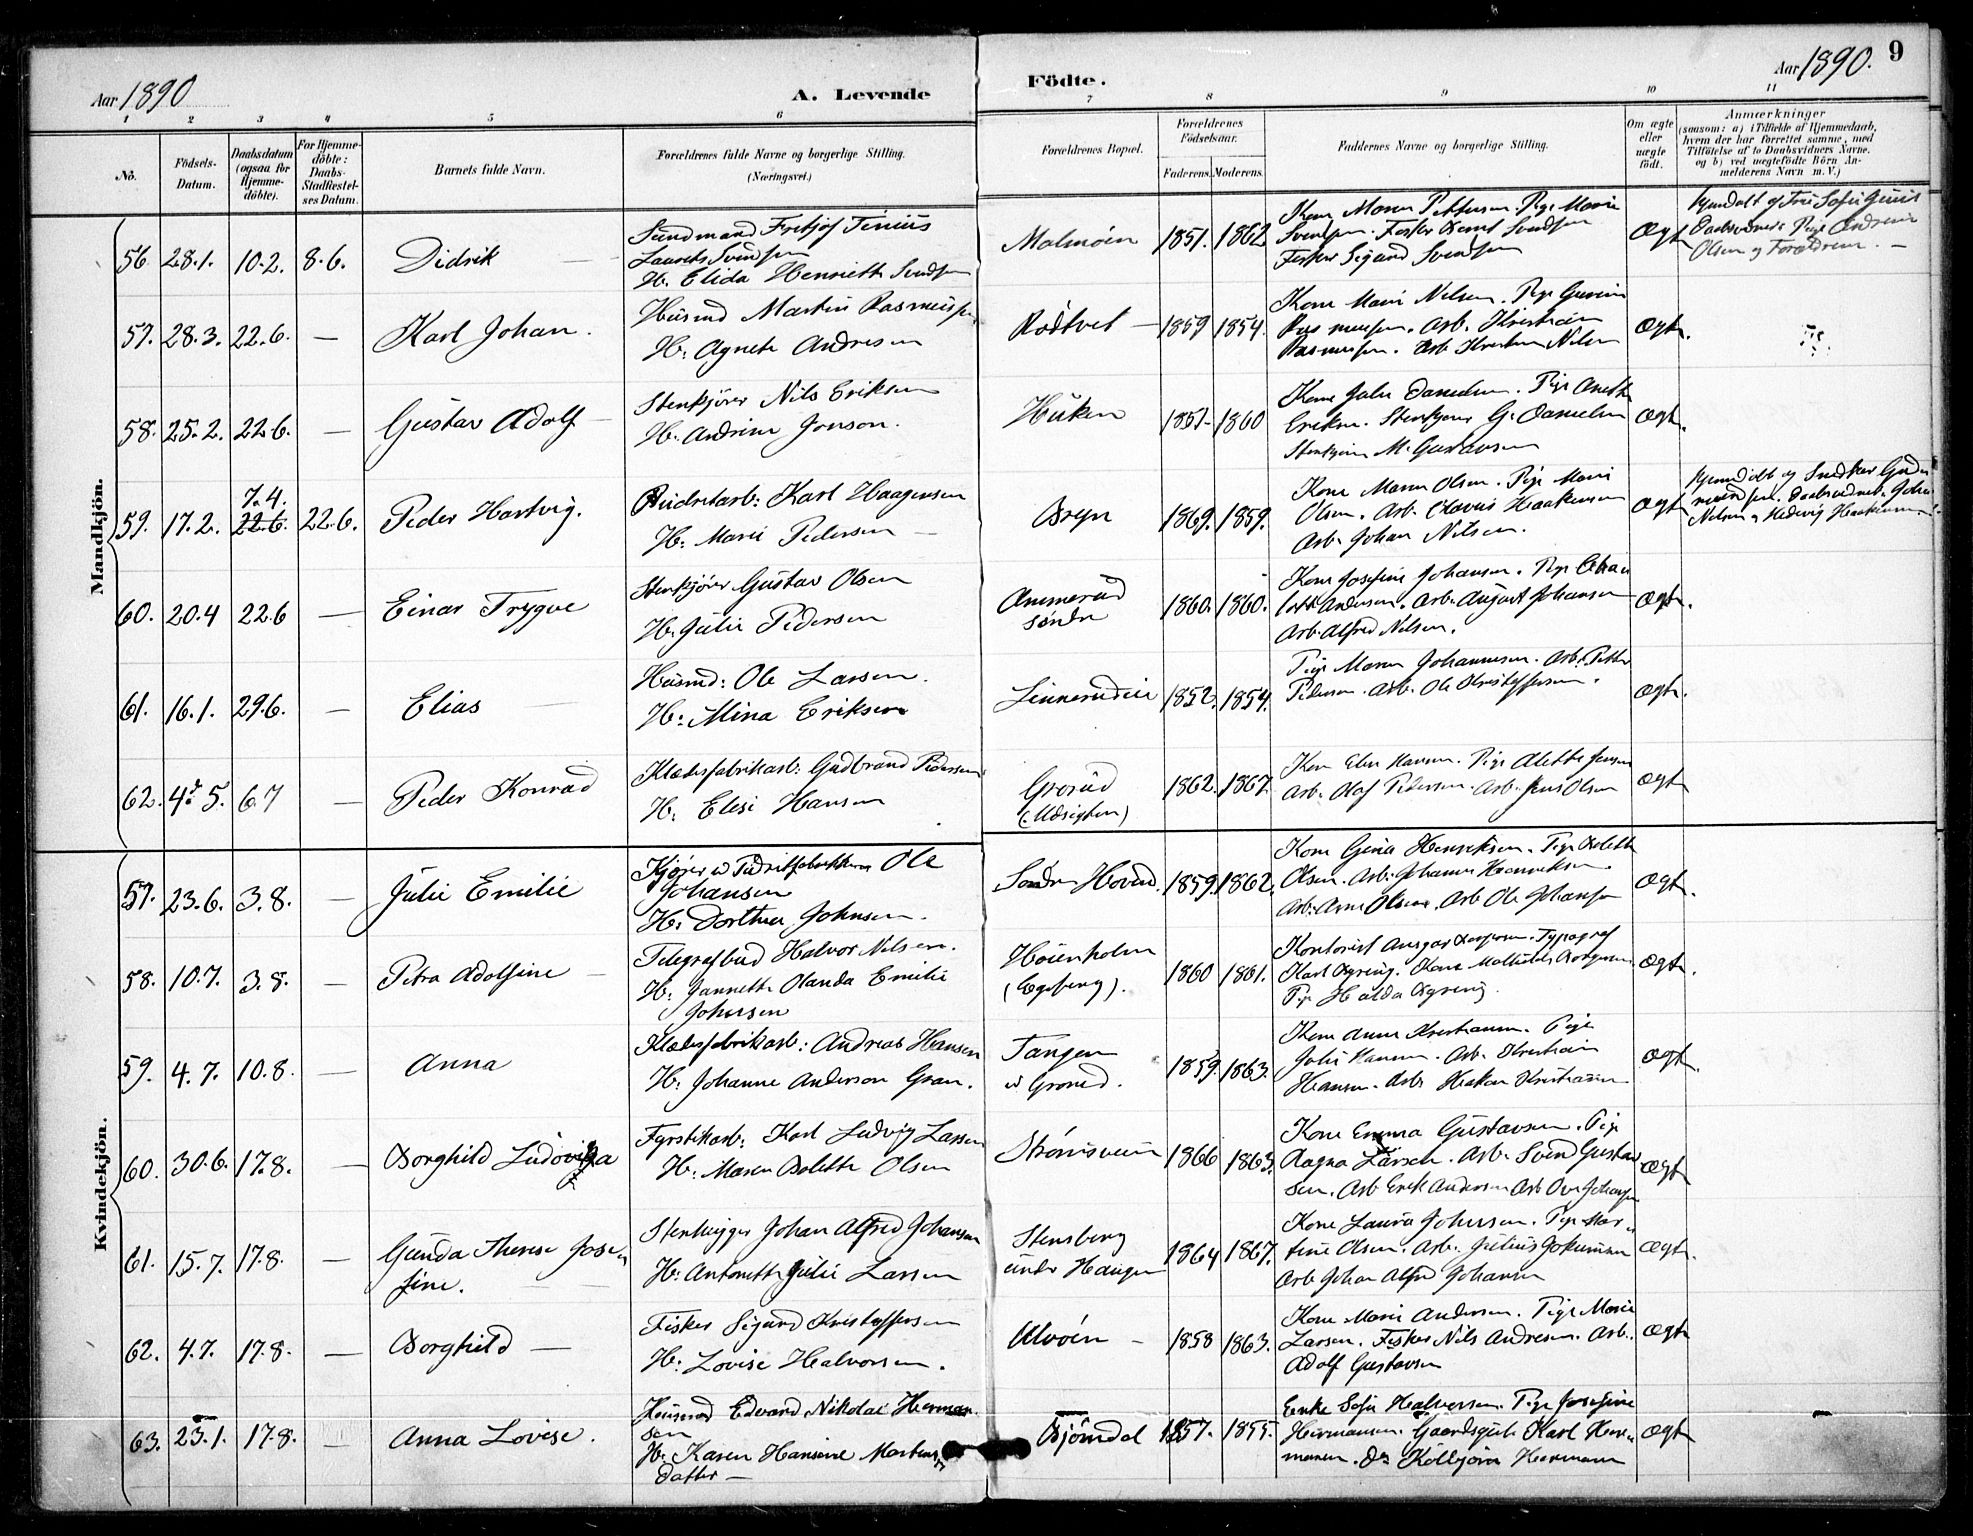 Aar 1890
A. Levende
Födte.
Aar 1890.
9
1 2 3 4 5 6 7 8 9 10 11
No.
Födsels-
Datum.
Daabsdatum
(ogsaa for
Hjemme-
döbte).
For Hjemme-
döbte:
Daabs-
Stadfæstel-
ses Datum.
Barnets fulde Navn.
Forældrenes fulde Navne og borgerlige Stilling.
(Næringsvei.)
Forældrenes Bopæl.
Forældrenes
Födselsaar.
Faderens.
Moderens.
Faddernes Navne og borgerlige Stilling.
Om ægte
eller
uægte
födt.
Anmærkninger
(saasom: a) i Tilfælde af Hjemmedaab,
hvem der har forrettet samme, med
Tilföielse af to Daabsvidners Navne.
og b) ved uægtefödte Börn An-
melderens Navn m. V.)
Mandkjön.
56. 28.1. 10.2. 8.6. Didrik
Sundmand Fritjof Tinius
Laurits Svendsen
H: Elida Henriette Svendsen
Malmøen 1851. 1862
Kone Maren Pettersen. Pige Marie
Svendsen. Fisker Svendsen
Fisker Sigurd Svendsen
Ægte
Hjemdøbt af Fru Sofie
Daabsvidner: Pige Andrine
Olsen og Forældrene. —
57. 28.3. 22.6. — Karl Johan.
Husmd Martin Rasmussen
H: Agnete Andresen
Rødtvet — 1859 1854.
Kone Marie Nilsen. Pige
Rasmussen. Arb. Kristian
Rasmussen. Arb Nilsen
Ægte.
58. 25.2. 22.6. — Gustav Adolf —
Stenkjører Nils Eriksen
H: Andrine Jonson.
Huken 1857. 1860
Kone Julie Danielsen. Pige Anette
Eriksen. Stenkjører G. Danielsen
Stenkjører M. Gustavsen
Ægte.
59. 17.2. 7.4. 22.6. 22.6. Peder Hartvig.
Karl Haagensen
H: Marie Pedersen —
Bryn 1869. 1859.
Kone Maren Olsen. Pige Marie
Olsen. Arb. Olavus Haakensen
Arb. Johan Nilsen.
Ægte
Hjemdøbt af Snedker
Daabsvidner: Johan
Nilsen og Hedevig Haakensen
60. 20.4 22.6 — Einar Trygve
Stenkjører Gustav Olsen
H: Julie Pedersen
Ammerud
søndre
1860. 1860.
Kone Josefine Johansen. Pige
Andersen. Arb. August Johansen
Arb. Alfred Nilsen.
Ægte.
61. 16.1. 29.6. — Elias —
Husmd: Ole Larsen.
H: Mina Eriksen
Linnerudeie 1852. 1854.
Pige Maren Johannesen. Arb. Petter
Pedersen. Arb. Ole Kristoffersen.
Ægte.
62. 4. 5. 6.7 — Peder Konrad
Klædesfabrikarb: Gudbrand Pedersen
H: Elisi Hansen
Grorud
(Udsigten)
1862. 1867.
Kone Elen Hansen. Pige Alette Jensen
Arb. Olaf Pedersen. Arb. Jens Olsen
Ægte
Kvindekjön.
57. 23.6. 3.8. — Julie Emilie
Kjører v Ole
Johansen
H: Dorthea Johnsen.
Søndre Hovind. 1859. 1862.
Kone Gina Henriksen. Pige
Olsen. Arb: Johannes Henriksen.
Arb: Arne Olsen. Arb Ole Johansen
Ægte.
58. 10.7. 3.8. — Petra Adolfine —
Telegrafbud Halvor Nilsen.
H: Jannette Olanda Emilie
Johnsen
Høienholm
(Egeberg).
1860 1861.
Kontorist Ansgar. Typograf
Karl. Kone Mathilde
Pige Halda
Ægte.
59. 4.7. 10.8. — Anna
Klædesfabrikarb: Andreas Hansen
H: Johanne Anderson Gran.
Tangen
v Grorud.
1859. 1863.
Kone Anna Kristiansen. Pige
Julie Hansen. Arb. Kristian
Hansen. Arb: Haakon Kristiansen
Ægte.
60. 30.6. 17.8. — Borghild Ludovika
Fyrstikarb: Karl Ludvig Larsen
H: Maren Bolette Olsen
Strømsveien 1866 1863.
Kone Emma Gustavsen. Pige
Ragna Larsen. Arb. Svend Gustav
sen. Arb Erik Andersen Arb Ove Johansen
Ægte
61. 15.7. 17.8. — Gunda Therese Jose
fine. —
Stenhugger Johan Alfred Johansen
H: Antonette Julie Larsen
Stensberg
under Haugen
1864 1867.
Kone Laura Johnsen. Pige Mar
tine Olsen. Arb. Julius
Arb Johan Alfred Johansen
Ægte.
62. 4.7. 17.8. — Borghild —
Fisker Sigurd Kristoffersen
H: Lovise Halvorsen.
Ulvøen — 1858 1863.
Kone Marie Andersen. Pige Marie
Larsen. Fisker Nils Andresen. Arb.
Adolf Gustavsen
Ægte
63. 23.1. 17.8. — Anna Lovise.
Husmd Edvard Nikolai Herman
sen
H: Karen Hansine Martens
datter —
Bjørndal 1857. 1855.
Enke Sofie Halvorsen. Pige Josefine
Hermansen. Gaardsgut Karl Her
mansen. Do Kolbjørn Hermansen
Ægte